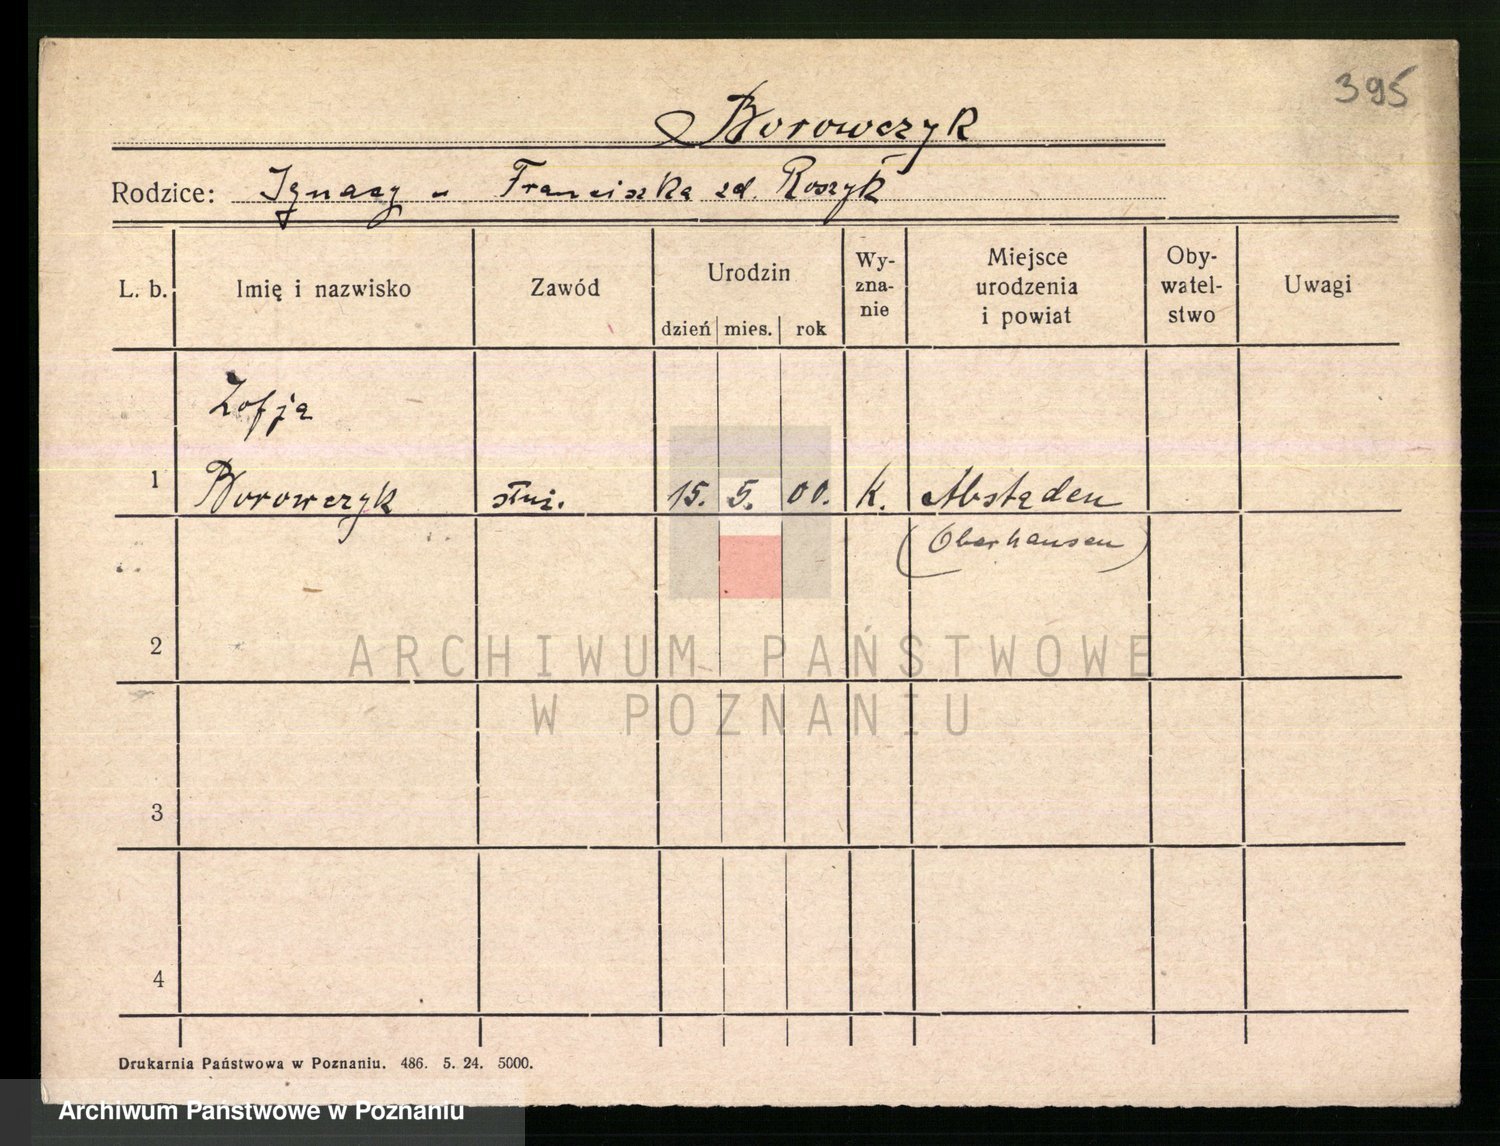 395
Borowczyk
Rodzice: Ignacy - Franciszka zd. Roszyk
L. b. Imię i nazwisko Zawód Urodzin dzień mies. rok Wy-zna-nie Miejsce urodzenia i powiat Oby-watel-stwo Uwagi
Zofja
1 Borowczyk służ. 15. 5. 00. k.
(Oberhausen)
2
ARCHIWUM PAŃSTWOWE
W POZNANIU
3
4
Drukarnia Państwowa w Poznaniu. 486. 5. 24. 5000.
Archiwum Państwowe w Poznaniu